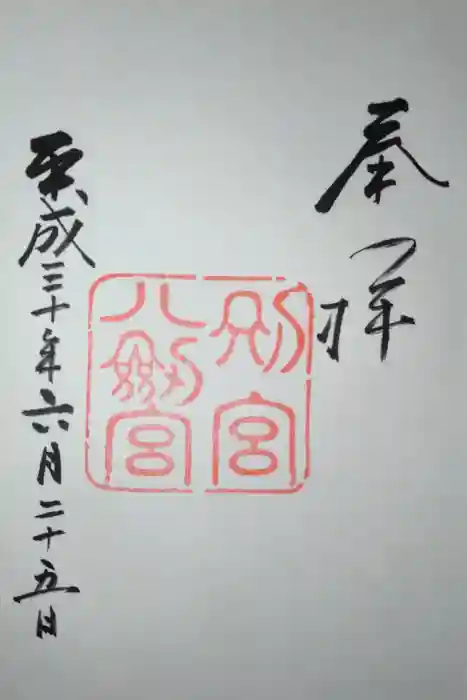 奉拝
別宮
八剱宮
平成三十年六月二十五日